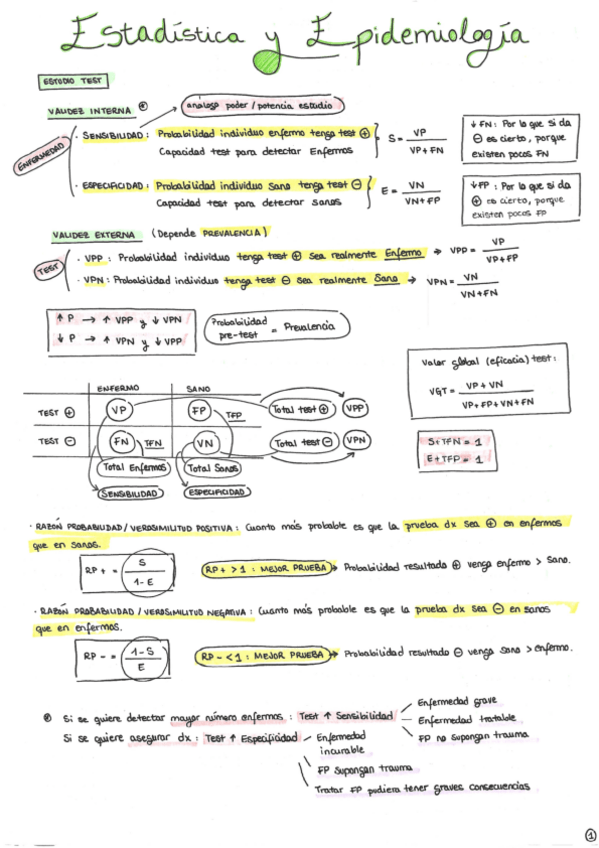 Estadística y Epidemiología
ESTUDIO TEST
VALIDEZ INTERNA ⊛ → análogo poder/potencia estudio
ENFERMEDAD
· SENSIBILIDAD: Probabilidad individuo enfermo tenga test ⊕
Capacidad test para detectar Enfermos
S = VP / VP + FN
↓FN: Por lo que si da
⊖ es cierto, porque
existen pocos FN
· ESPECIFICIDAD: Probabilidad individuo Sano tenga test ⊖
Capacidad test para detectar sanos
E = VN / VN + FP
↓FP: Por lo que si da
⊕ es cierto, porque
existen pocos FP
VALIDEZ EXTERNA (Depende PREVALENCIA)
TEST
· VPP: Probabilidad individuo tenga test ⊕ sea realmente Enfermo → VPP = VP / VP + FP
· VPN: Probabilidad individuo tenga test ⊖ sea realmente Sano → VPN = VN / VN + FN
↑P → ↑ VPP y ↓ VPN
↓P → ↑ VPN y ↓ VPP
Probabilidad pre-test = Prevalencia
Valor global (eficacia) test:
VGT = VP + VN / VP + FP + VN + FN
ENFERMO SANO
TEST ⊕ VP FP TFP Total test ⊕ VPP
TEST ⊖ FN TFN VN Total test ⊖ VPN
Total Enfermos Total Sanos
SENSIBILIDAD ESPECIFICIDAD
S + TFN = 1
E + TFP = 1
· RAZÓN PROBABILIDAD/VEROSIMILITUD POSITIVA: Cuanto más probable es que la prueba dx sea ⊕ en enfermos
que en sanos.
RP + = S / 1 - E
RP + > 1: MEJOR PRUEBA → Probabilidad resultado ⊕ venga enfermo > Sano.
· RAZÓN PROBABILIDAD/VEROSIMILITUD NEGATIVA: Cuanto más probable es que la prueba dx sea ⊖ en sanos
que en enfermos.
RP - = 1 - S / E
RP - < 1: MEJOR PRUEBA → Probabilidad resultado ⊖ venga sano > enfermo.
⊛ Si se quiere detectar mayor número enfermos: Test ↑ Sensibilidad
Enfermedad grave
Enfermedad tratable
FP no supongan trauma
Si se quiere asegurar dx: Test ↑ Especificidad
Enfermedad
incurable
FP supongan trauma
Tratar FP pudiera tener graves consecuencias
1